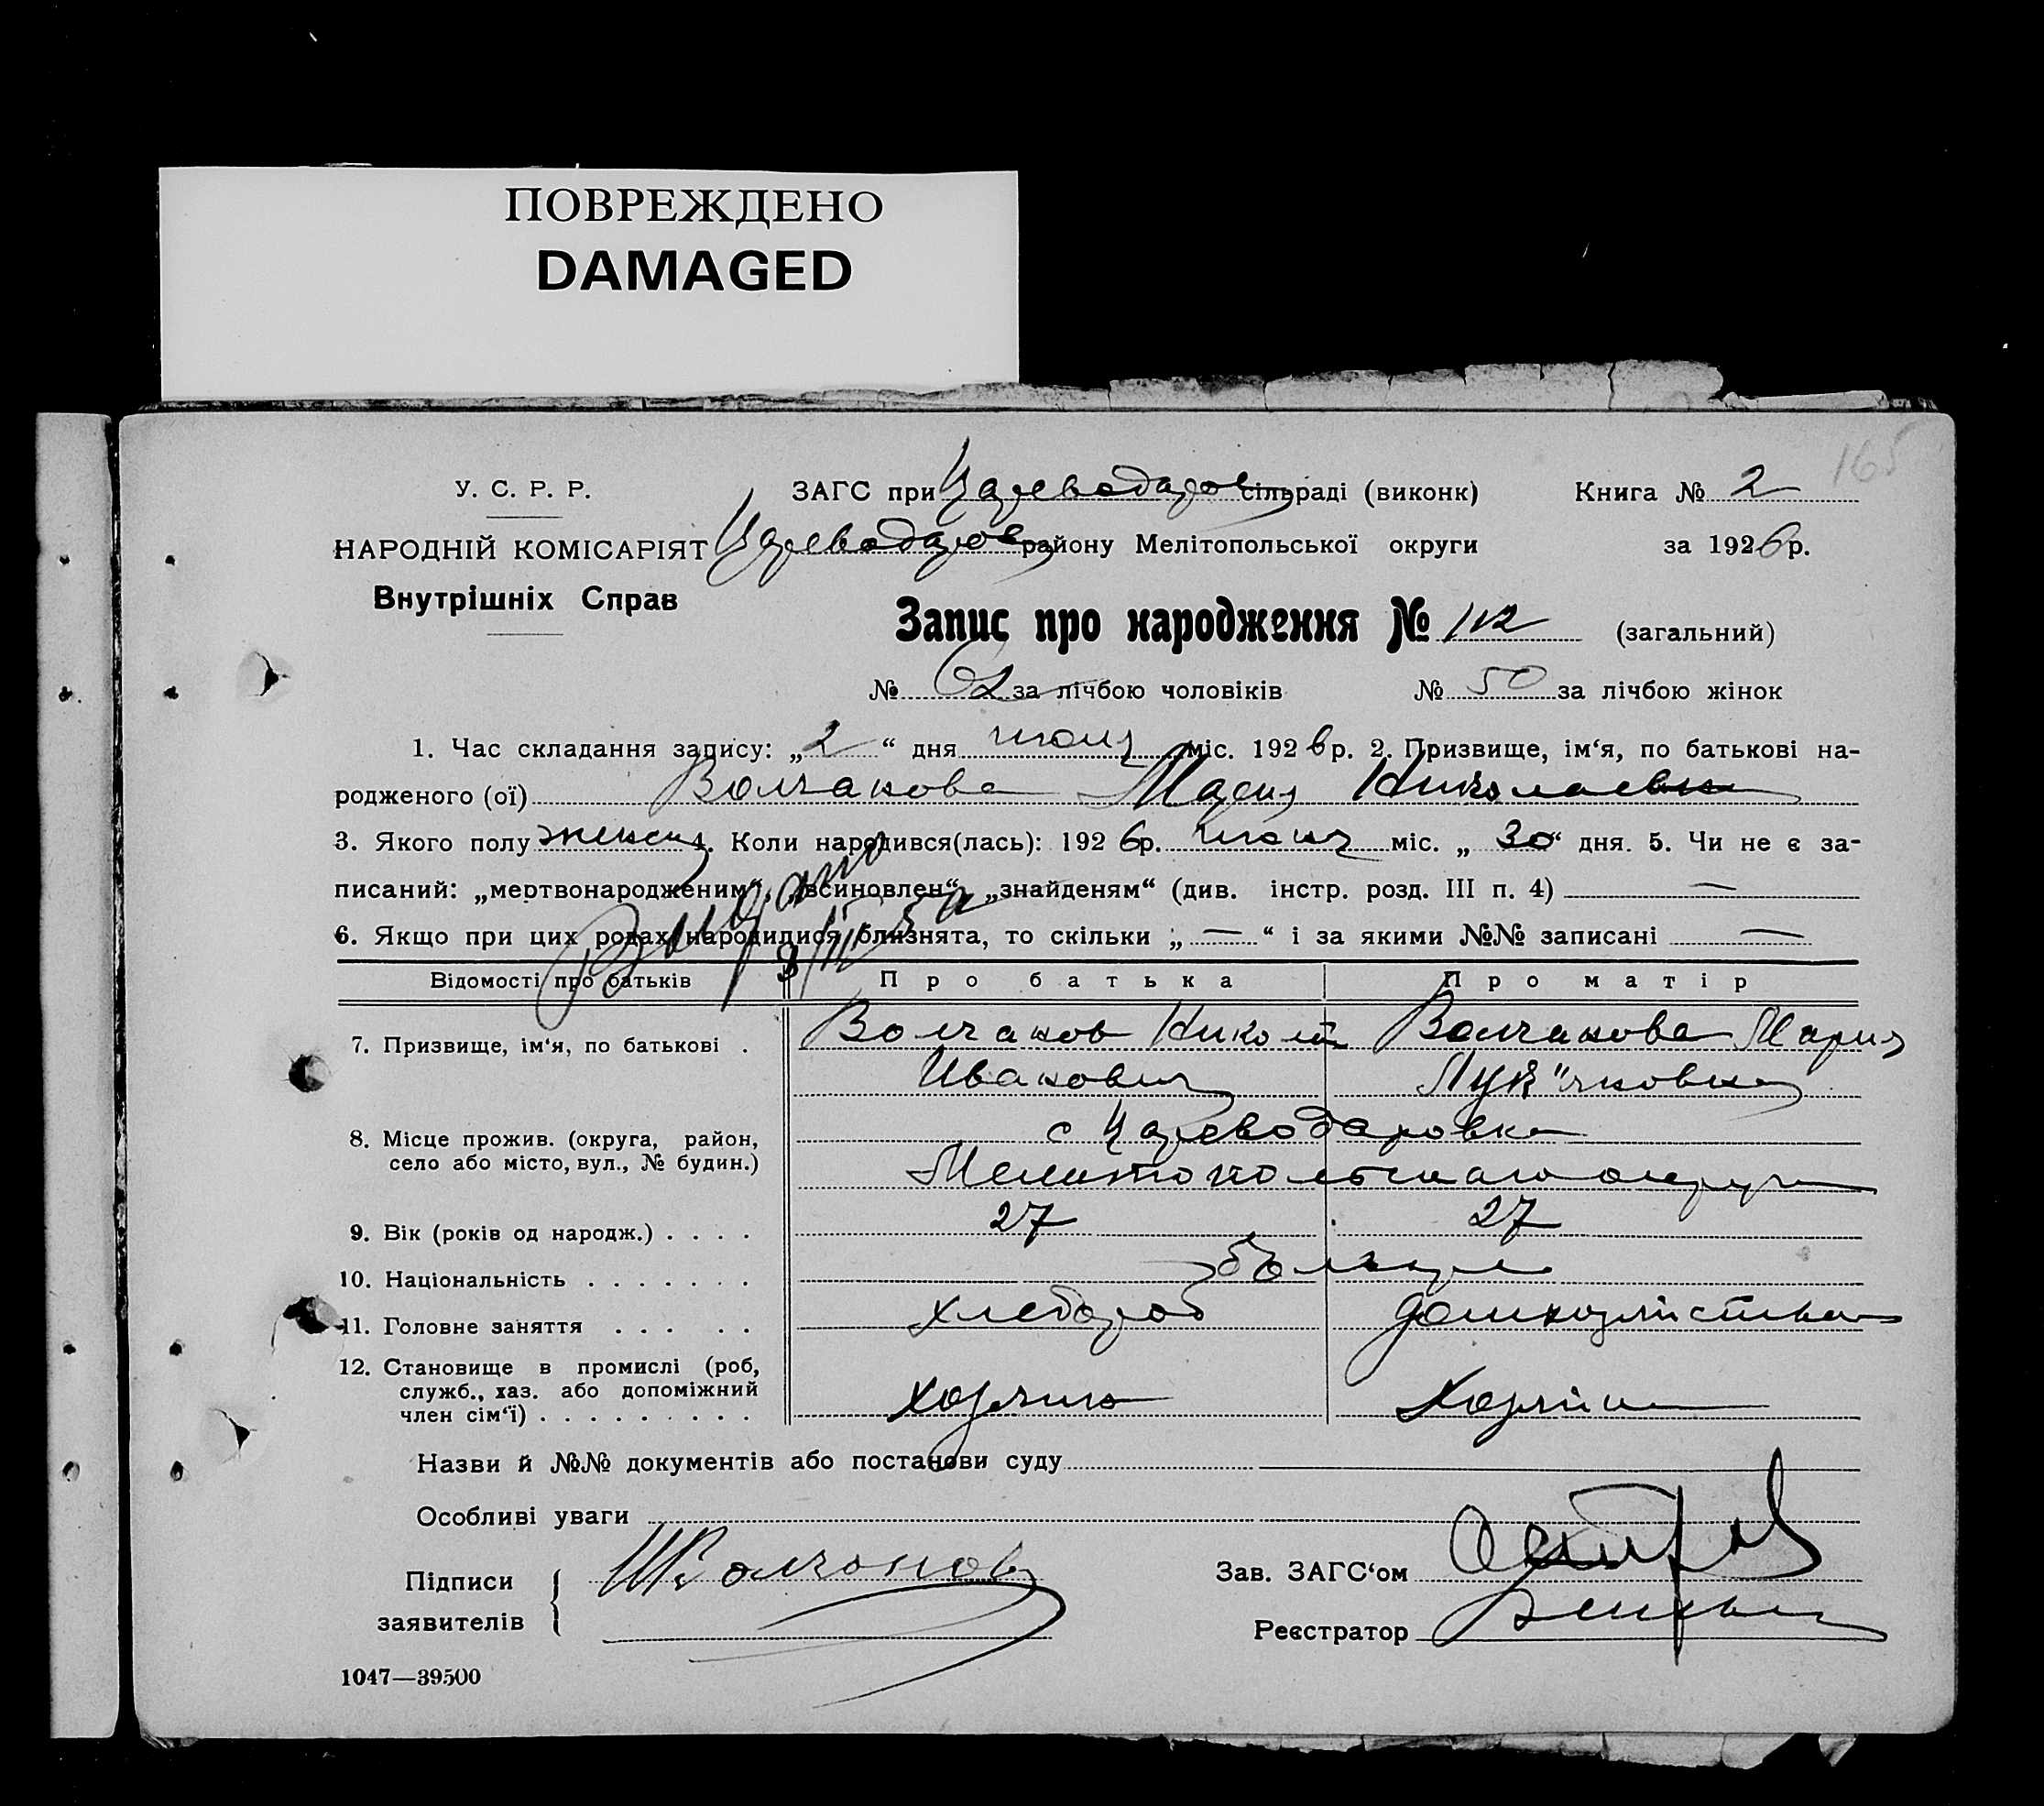 ПОВРЕЖДЕНО
DAMAGED
165
У. С. Р. Р.
ЗАГС при Цареводаров сільраді (виконк)
Книга № 2
НАРОДНІЙ КОМІСАРІЯТ
Цареводаров району Мелітопольської округи
за 1926 р.
Внутрішніх Справ
Запис про народження № 112 (загальний)
№ 62 за лічбою чоловіків № 50 за лічбою жінок
1. Час складання запису: „2“ дня міс. 1926 р. 2. Призвище, ім‘я, по батькові на-
родженого (ої) Волчакова Мария Николаевна
3. Якого полу женск 4. Коли народився(лась): 1926 р. міс. „30“ дня. 5. Чи не є за-
писаний: „мертвонародженим“, „всиновлен“, „знайденям“ (див. інстр. розд. III п. 4) —
6. Якщо при цих родах народилися близнята, то скільки „—“ і за якими №№ записані —
Выдано
Відомості про батьків
Про батька
Про матір
7. Призвище, ім‘я, по батькові .
Волчаков Николай
Волчакова Мария
Иванович
8. Місце прожив. (округа, район,
село або місто, вул., № будин.)
с Цареводаровка
Мелитопольского округа
9. Вік (років од народж.) . . . .
27
27
10. Національність . . . . . . .
болгаре
11. Головне заняття . . . . .
хлебороб
домохозяйства
12. Становище в промислі (роб,
служб., хаз. або допоміжний
член сім‘ї) . . . . . . . . .
хозяин
Хозяйка
Назви й №№ документів або постанови суду
Особливі уваги
Підписи
заявителів
Волчаков
Зав. ЗАГС‘ом
Реєстратор
1047—39500